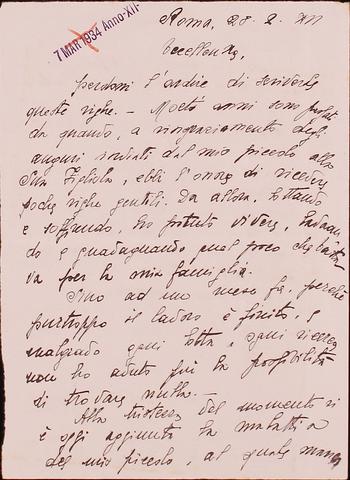 7 MAR 1934 Anno XII
Roma, 28. 2. XII
Eccellenza,
perdoni l'ardire di scriverle
queste righe. - Molti anni sono passati
da quando, a ringraziamento degli
auguri inviati dal mio piccolo alla
Sua Figliola, ebbi l'onore di ricevere
poche righe gentili. Da allora, lottando
e soffrendo, ho potuto vivere,
do e guadagnando quel poco che basta
va per la mia famiglia.
Sino ad un mese fa, perché
purtroppo il lavoro è finito, e
malgrado ogni lotta, ogni ricerca
non ho avuto più la possibilità
di trovare nulla. -
Alla tristezza del momento si
è oggi aggiunta la malattia
del mio piccolo, al quale manca